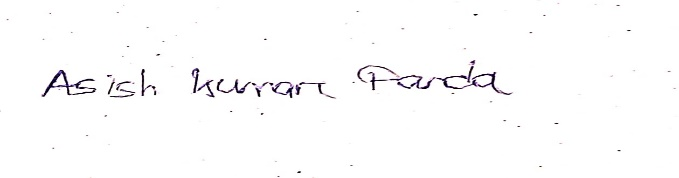 Asish Kumar Panda